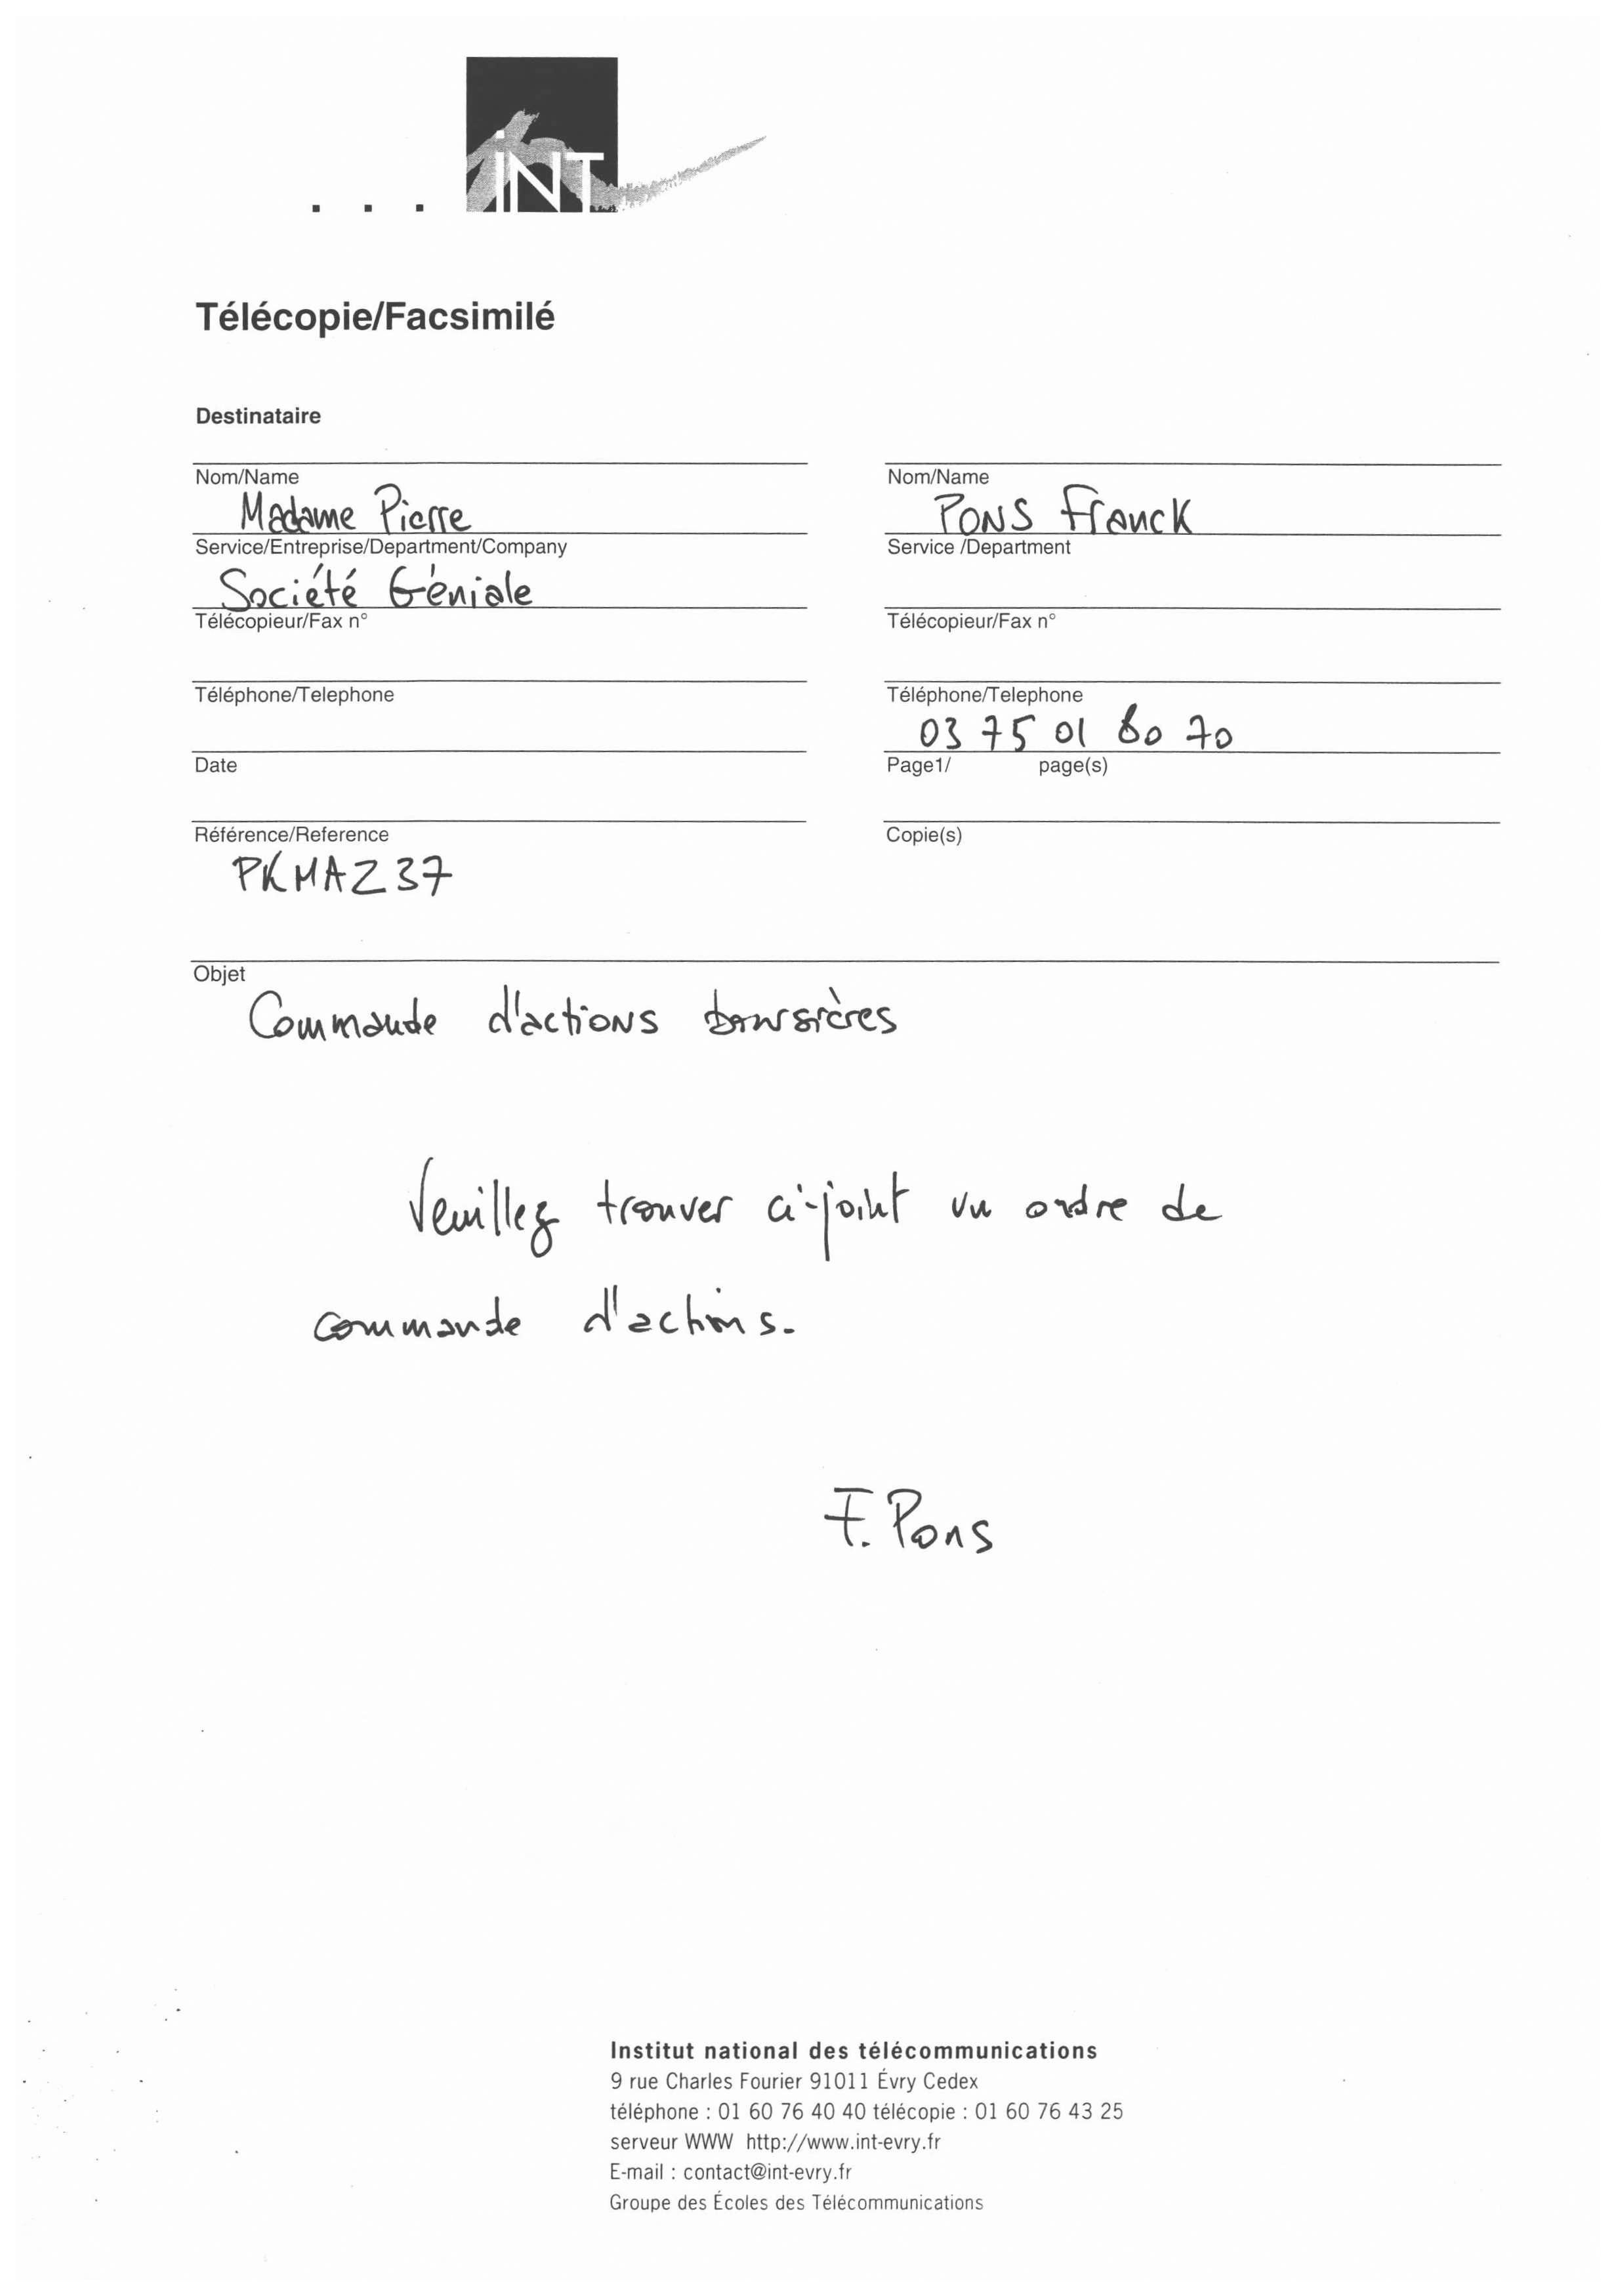 iNT
Télécopie/Facsimilé
Destinataire
Nom/Name
Madame Pierre
Service/Entreprise/Department/Company
Société Géniale
Télécopieur/Fax n°
Téléphone/Telephone
Date
Référence/Reference
PKMAZ37
Nom/Name
PONS Franck
Service /Department
Télécopieur/Fax n°
Téléphone/Telephone
03 75 01 80 70
Page1/ page(s)
Copie(s)
Objet
Commande d'actions boursières
Veuillez trouver ci-joint un ordre de
commande d'actions.
F. Pons
Institut national des télécommunications
9 rue Charles Fourier 91011 Évry Cedex
téléphone : 01 60 76 40 40 télécopie : 01 60 76 43 25
serveur WWW http://www.int-evry.fr
E-mail : contact@int-evry.fr
Groupe des Écoles des Télécommunications